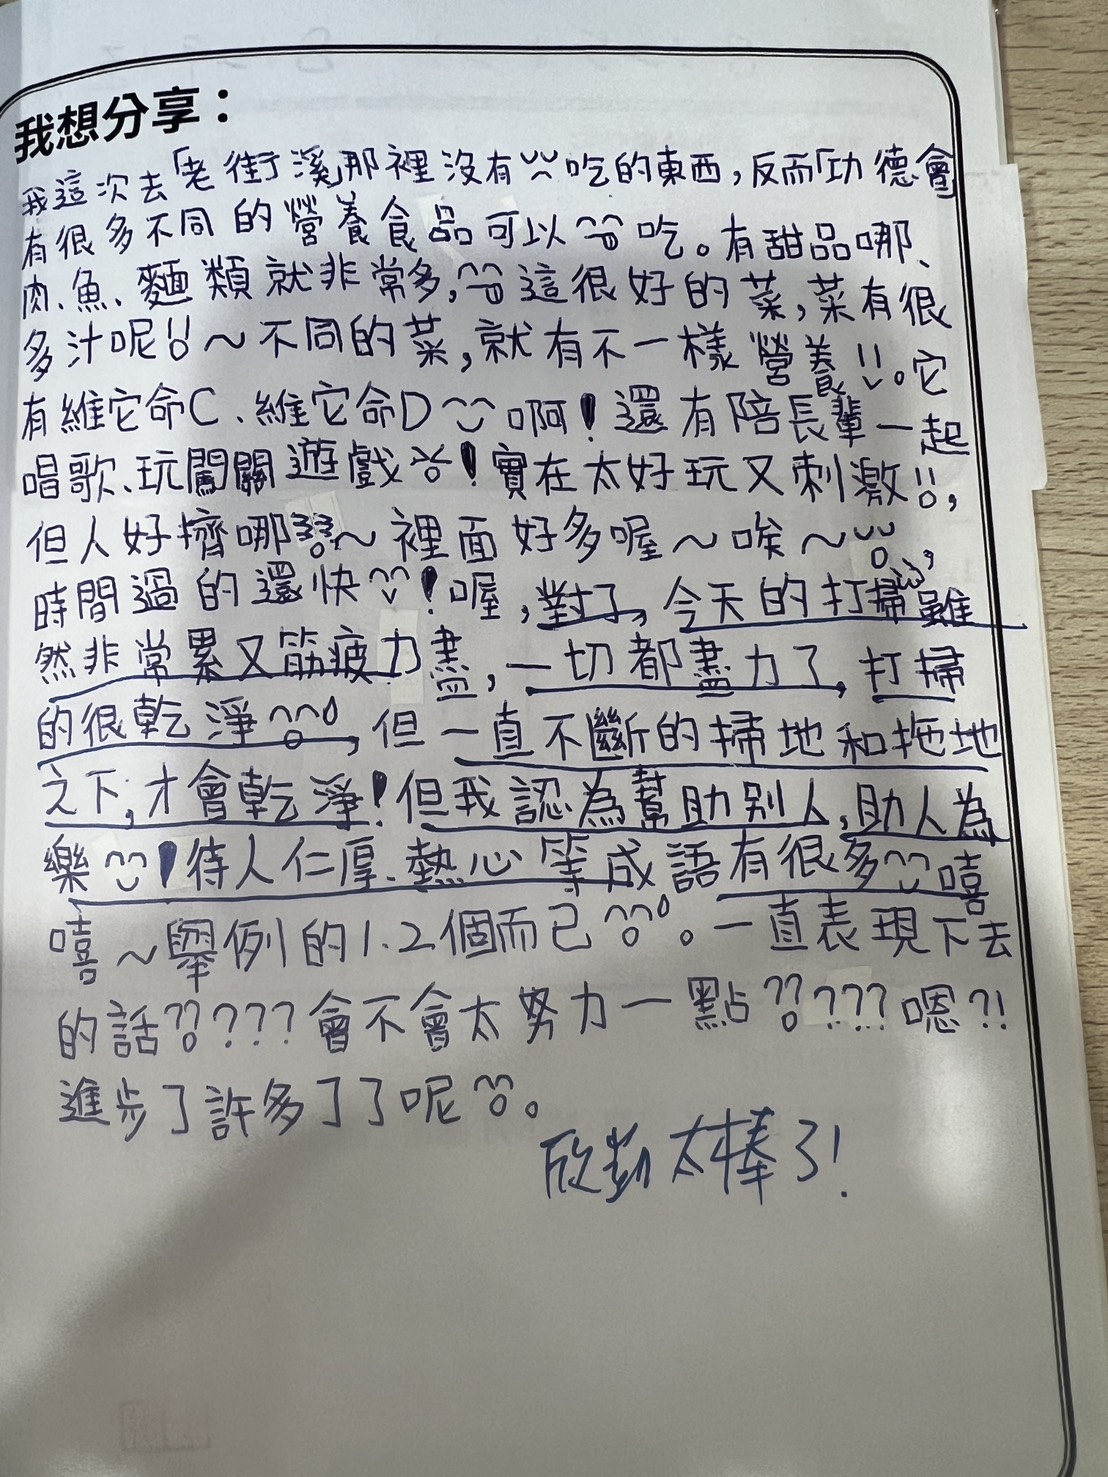 我想分享：
我這次去「老街溪」那裡沒有吃的東西，反而「功德會」
有很多不同的營養食品可以吃。有甜品哪、
肉、魚、麵類就非常多，這很好的菜，菜有很
多汁呢!!～不同的菜，就有不一樣營養!!。它
有維它命C、維它命D啊！還有陪長輩一起
唱歌、玩闖關遊戲！實在太好玩又刺激!!，
但人好擠哪??～裡面好多喔～唉～，
時間過的還快！喔，對了，今天的打掃雖
然非常累又筋疲力盡，一切都盡力了，打掃
的很乾淨，但一直不斷的掃地和拖地
之下，才會乾淨！但我認為幫助别人，助人為
樂！待人仁厚、熱心等成語有很多嘻
嘻～舉例的1.2個而已。一直表現下去
的話?????會不會太努力一點?????嗯?!
進步了許多了了呢。
太棒了！